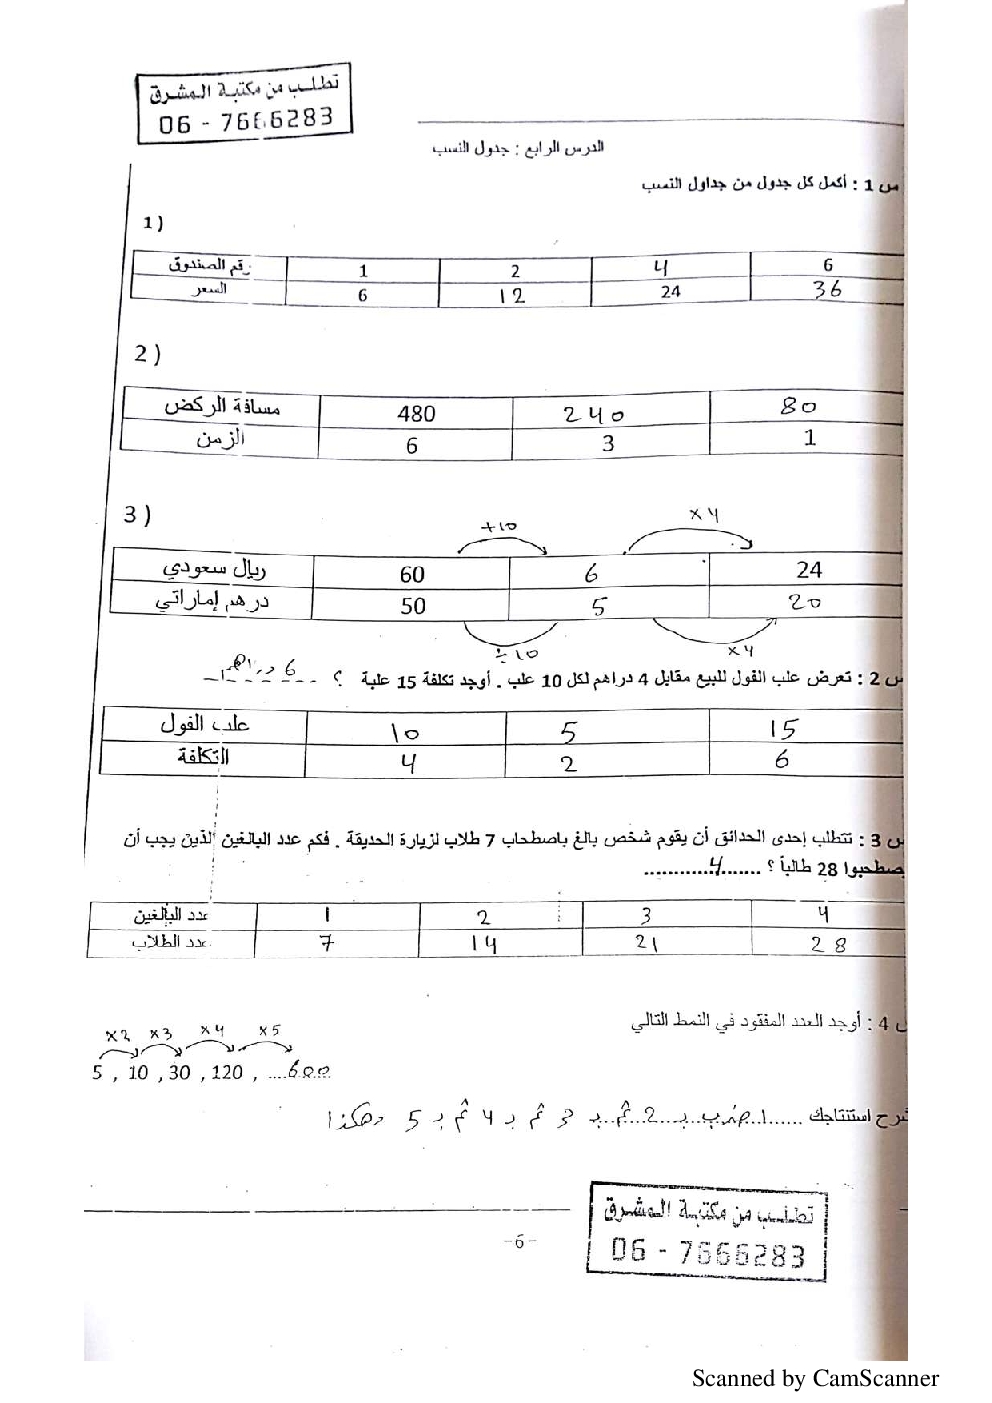 تطلب من مكتبة المشرق
06 - 7666283
الدرس الرابع : جدول النسب
س 1 : أكمل كل جدول من جداول النسب
1)
رقم الصندوق 1 2 4 6
السعر 6 12 24 36
2)
مسافة الركض 480 240 80
الزمن 6 3 1
3)
÷10 ×4
ريال سعودي 60 6 24
درهم إماراتي 50 5 20
÷10 ×4
س 2 : تعرض علب الفول للبيع مقابل 4 دراهم لكل 10 علب . أوجد تكلفة 15 علبة ؟ 6 دراهم
علب الفول 10 5 15
التكلفة 4 2 6
س 3 : تتطلب إحدى الحدائق أن يقوم شخص بالغ باصطحاب 7 طلاب لزيارة الحديقة . فكم عدد البالغين الذين يجب أن
يصطحبوا 28 طالباً ؟ .......4............
عدد البالغين 1 2 3 4
عدد الطلاب 7 14 21 28
س 4 : أوجد العدد المفقود في النمط التالي
×2 ×3 ×4 ×5
5 , 10 , 30 , 120 , ....600
اشرح استنتاجك ......ا.ضرب بـ 2 ثم بـ 3 ثم بـ 4 ثم بـ 5 وهكذا
-6-
تطلب من مكتبة المشرق
06 - 7666283
Scanned by CamScanner